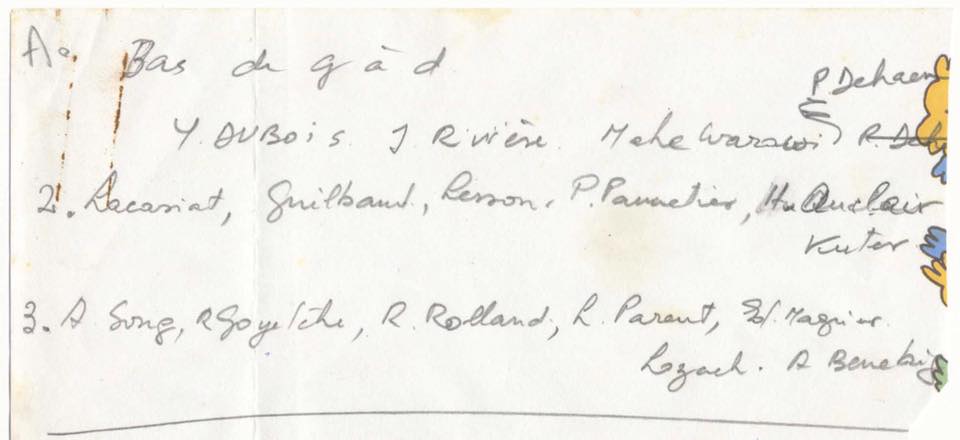 A. Bas de g à d
P. Dehaen
Y. DUBois. J Rivière. Mehe Warzawoi
2. Lacassiat, Guilbaud, Lesson. P. Pannetier, H. Auclair
Kuter
3. A. Song, R Goyetche, R. Rolland, L. Parent, Ed. Magnier.
Lozach. A Benebig